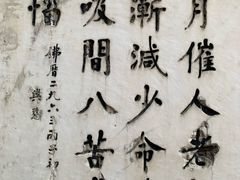 月催人老
漸減少命
吸間八苦
惱
佛曆二九六三丙子初
興慈